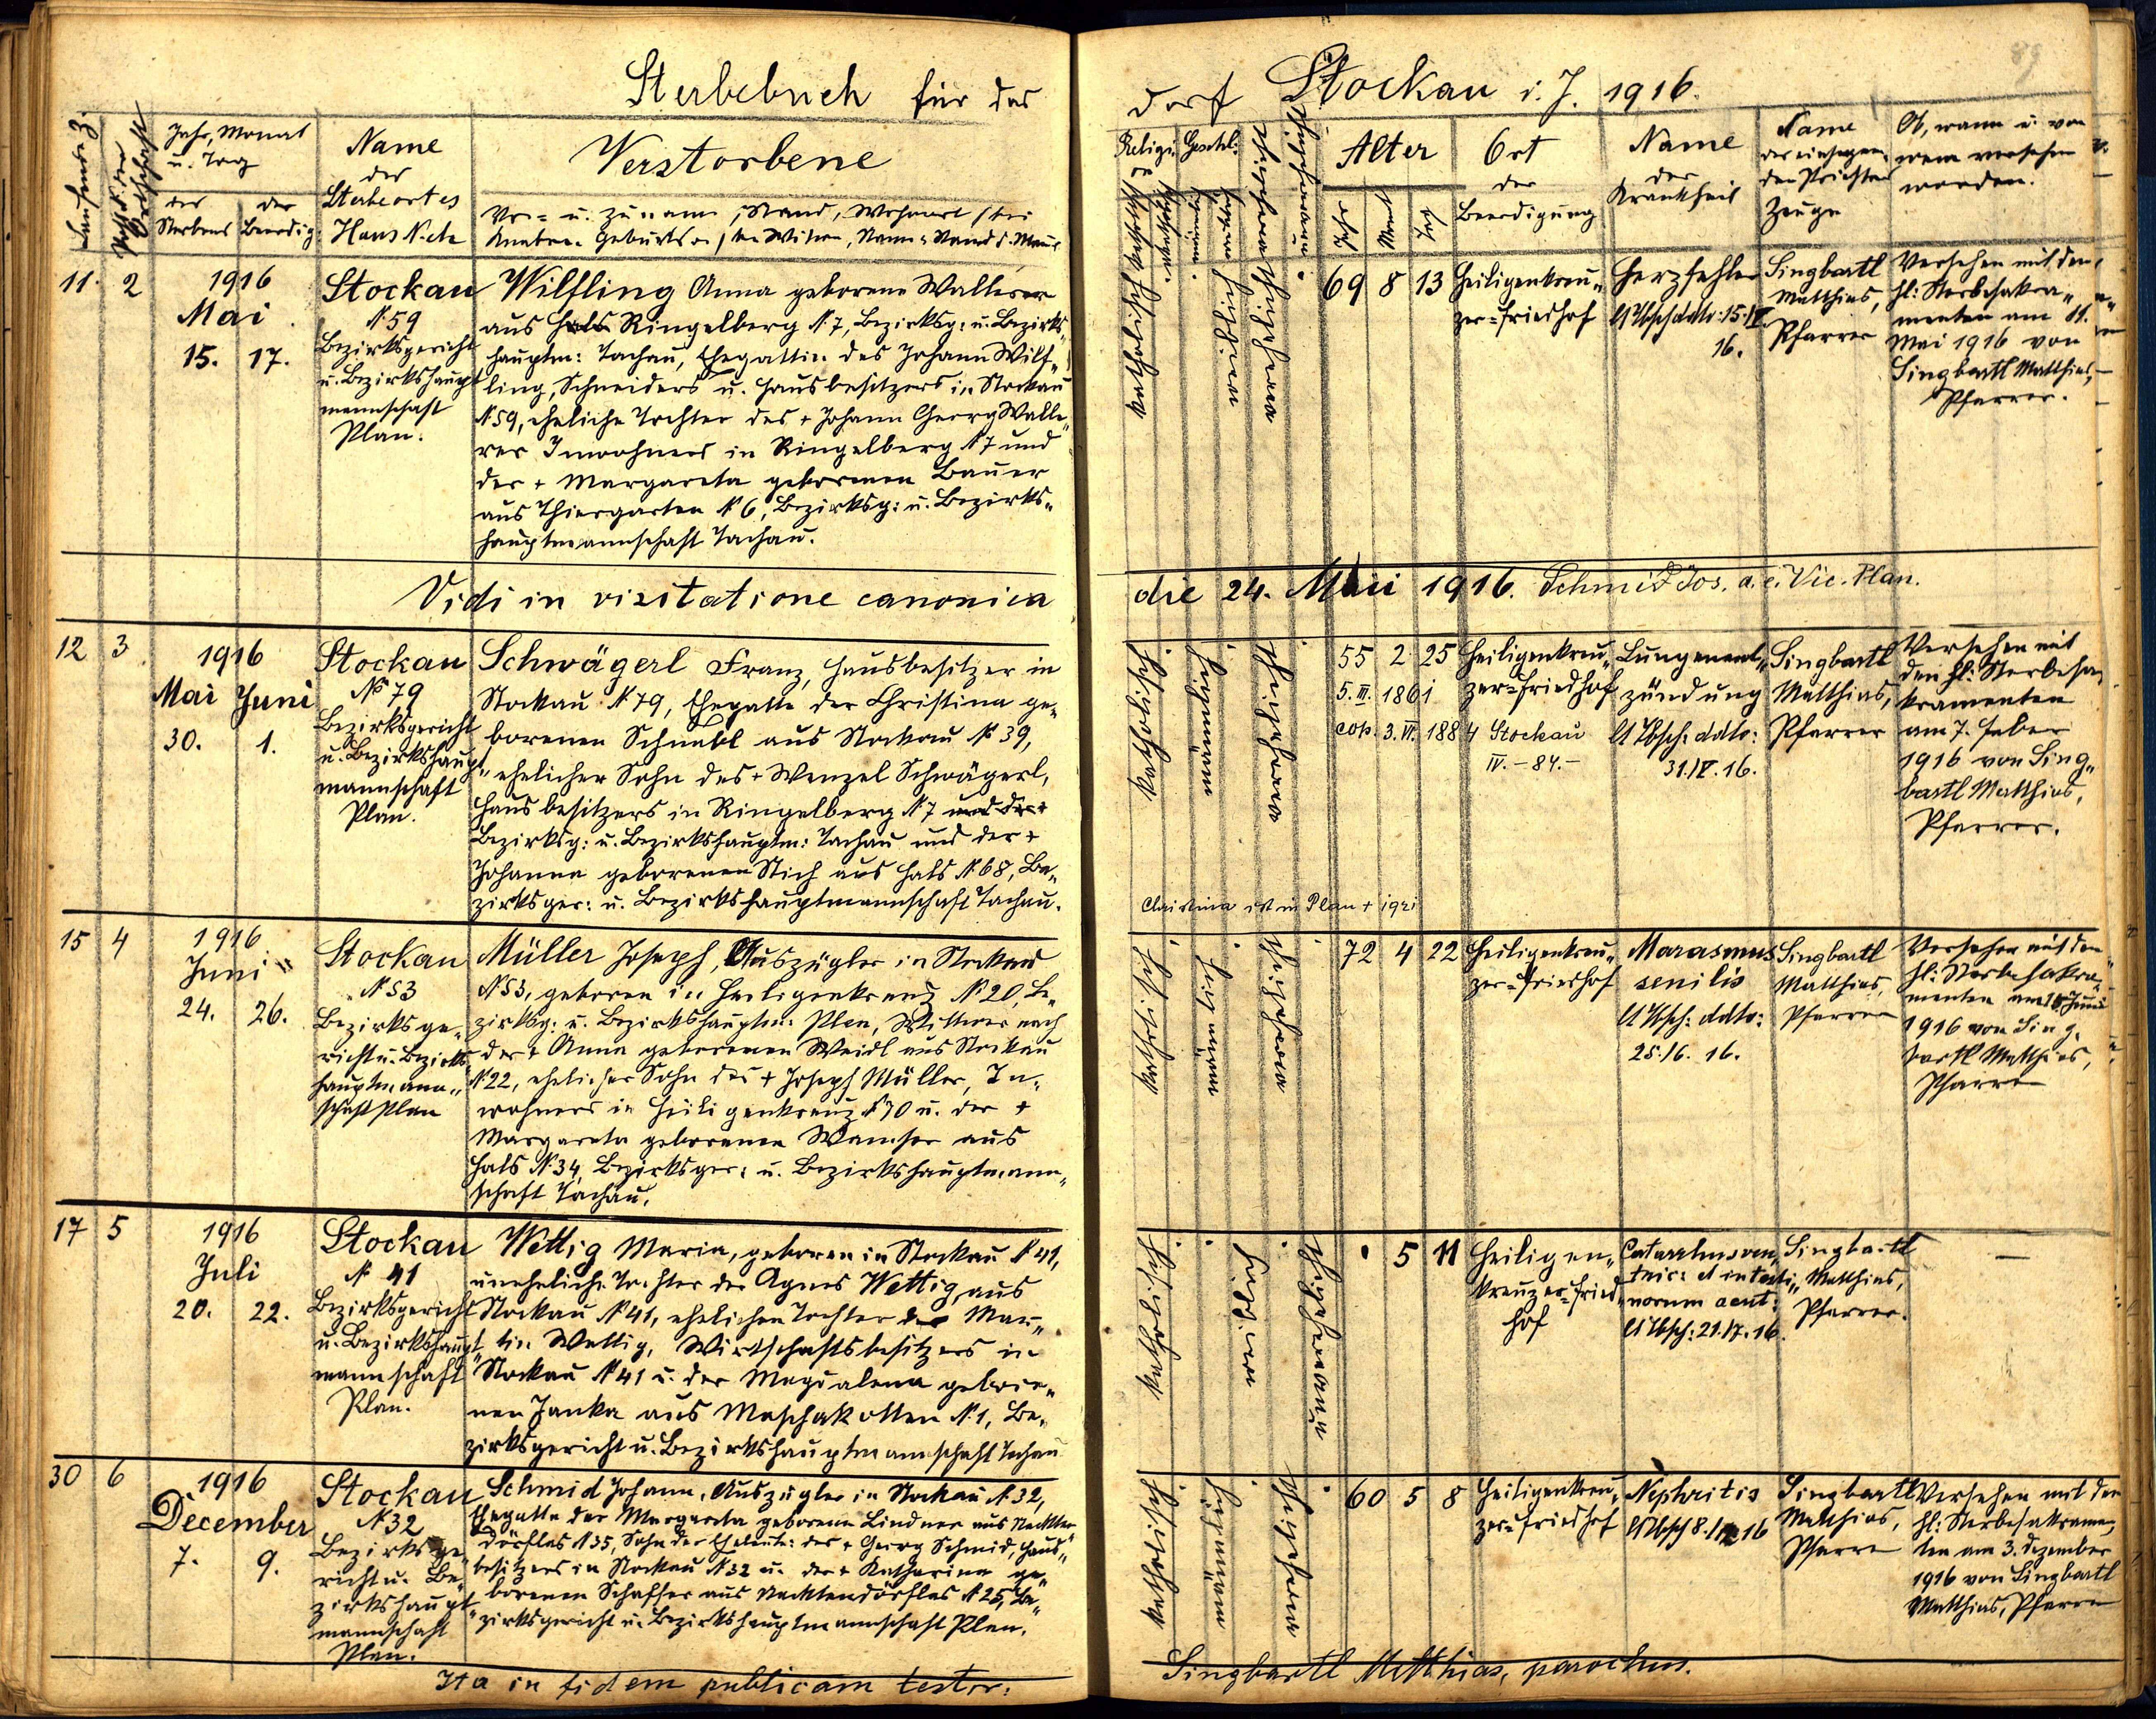 Sterbebuch für das
Dorf Stockau i. J. 1916.
89
Laufende Z.
Jahr, Monat
u. Tag
des
Sterbens
der
Beerdig.
Name
des
Sterbeortes
Haus N.
Verstorbene
Vor= u. Zuname, Stand, Wohnort
Religi.
Geschl.
Alter
Jahr
Monat
Tag
Ort
der
Beerdigung
Name
der
Krankheit
Name
des einsegnen=
den Priesters
Zeuge
Ob, wann u. von
wem versehen
worden.
11. 2
1916
Mai
15. 17.
Stockau
N. 59
Bezirksgericht
u. Bezirkshaupt
mannschaft
Plan.
Wilfling Anna geborene Wallerer
aus Hals Ringelberg N. 7, Bezirksg: u. Bezirks
hauptm: Tachau, Ehegattin des Johann Wilf„
ling, Schneiders u. Hausbesitzers in Stockau
N 59, eheliche Tochter des + Johann Georg Walle„
rer Inwohners in Ringelberg N 7 und
der + Margareta geborenen Bauer
aus Thiergarten N 6, Bezirksg: u. Bezirks„
hauptmannschaft Tachau.
katholisch
Eheleben
69 8 13
Heiligenkreu„
zer=Friedhof
Herzfehler
lt Tbsch ddto: 15./V.
16.
Singbartl
Matthias,
Pfarrer
Versehen mit den
hl: Sterbesakra„
menten am 11.
Mai 1916 von
Singbartl Matthias,
Pfarrer.
Vidi in visitatione canonica
die 24. Maii 1916. Schmid Jos. a. e. Vic. Plan.
12 3
1916
Mai Juni
30. 1.
Stockau
No 79
Bezirksgericht
u. Bezirkshaupt„
mannschaft
Plan.
Schwägerl Franz, Hausbesitzer in
Stockau N. 79, Ehegatte der Christina ge„
borenen Schnabl aus Stockau N. 39,
ehelicher Sohn des + Wenzel Schwägerl,
Hausbesitzers in Ringelberg N. 7 und der +
Bezirksg: u. Bezirkshauptm: Tachau und der +
Johanna geborenen Stich aus Hals N. 68, Be„
zirksger: u. Bezirkshauptmannschaft Tachau.
katholisch
55 2 25
5. III. 1861
cop. 3. VI. 1884 Stockau
IV. – 84. –
Heiligenkreu„
zer=Friedhof
Lungenent„
zündung
lt Tbsch: ddto:
31./V. 16.
Singbartl
Matthias,
Pfarrer
Versehen mit
den hl: Sterbesa„
kramenten
am 7. Feber
1916 von Sing„
bartl Matthias,
Pfarrer.
Christina ist in Plan +
15 4
1916
Juni
24. 26.
Stockau
N. 53
Bezirksge„
richt u. Bezirks„
hauptmann„
schaft Plan
Müller Joseph, Auszügler in Stockau
N. 53, geboren in Heiligenkreuz N. 20, Be„
zirksg: u. Bezirkshauptm: Plan, Witwer nach
der + Anna geborenen Weidl aus Stockau
N. 22, ehelicher Sohn des + Joseph Müller, In„
wohners in Heiligenkreuz N 70 u. der +
Margareta geborenen Wamser aus
Hals N. 34, Bezirksger: u. Bezirkshauptmann„
schaft Tachau.
katholisch
72 4 22
Heiligenkreu„
zer=Friedhof
Marasmus
senilis
lt Tbsch: ddto:
25./6. 16.
Singbartl
Matthias,
Pfarrer
Versehen mit den
hl: Sterbesakra„
menten am Juni
1916 von Sing„
bartl Matthias,
Pfarrer
17 5
1916
Juli
20. 22.
Stockau
N. 41
Bezirksgericht
u. Bezirkshaupt„
mannschaft
Plan.
Wettig Maria, geboren in Stockau N 41,
uneheliche Tochter der Agnes Wettig, aus
Stockau N 41, ehelichen Tochter des Mar„
tin Wettig, Wirtschaftsbesitzers in
Stockau N 41 u. der Magdalena gebore„
nen Janka aus Maschakotten N. 1, Be„
zirksgericht u. Bezirkshauptmannschaft Tachau
katholisch
5 11
Heiligen„
kreuzer=Fried„
hof
Catarrhus ven„
tric: et intesti„
norum acut:
lt Tbsch: 21./7. 16.
Singbartl
Matthias,
Pfarrer.
—
30 6
1916
December
7. 9.
Stockau
N. 32
Bezirksge„
richt u. Be„
zirkshaupt„
mannschaft
Plan.
Schmid Johann, Auszügler in Stockau N. 32,
Ehegatte der Margareta geborene Lindner aus Nackten
dörflas N 35, Sohn der Eheleute: des + Georg Schmid, Haus„
besitzers in Stockau N 32 u. der + Katharina ge„
borenen Schaffer aus Nacktendörflas N 25, Be„
zirksgericht u. Bezirkshauptmannschaft Plan.
katholisch
60 5 8
Heiligenkreu„
zer=Friedhof
Nephritis
lt Tbsch 8./12 16
Singbartl
Matthias,
Pfarrer
Versehen mit den
hl: Sterbesakramen„
ten am 3. Dezember
1916 von Singbartl
Matthias, Pfarrer
Ita in fidem publicam testor:
Singbartl Matthias, parochus.